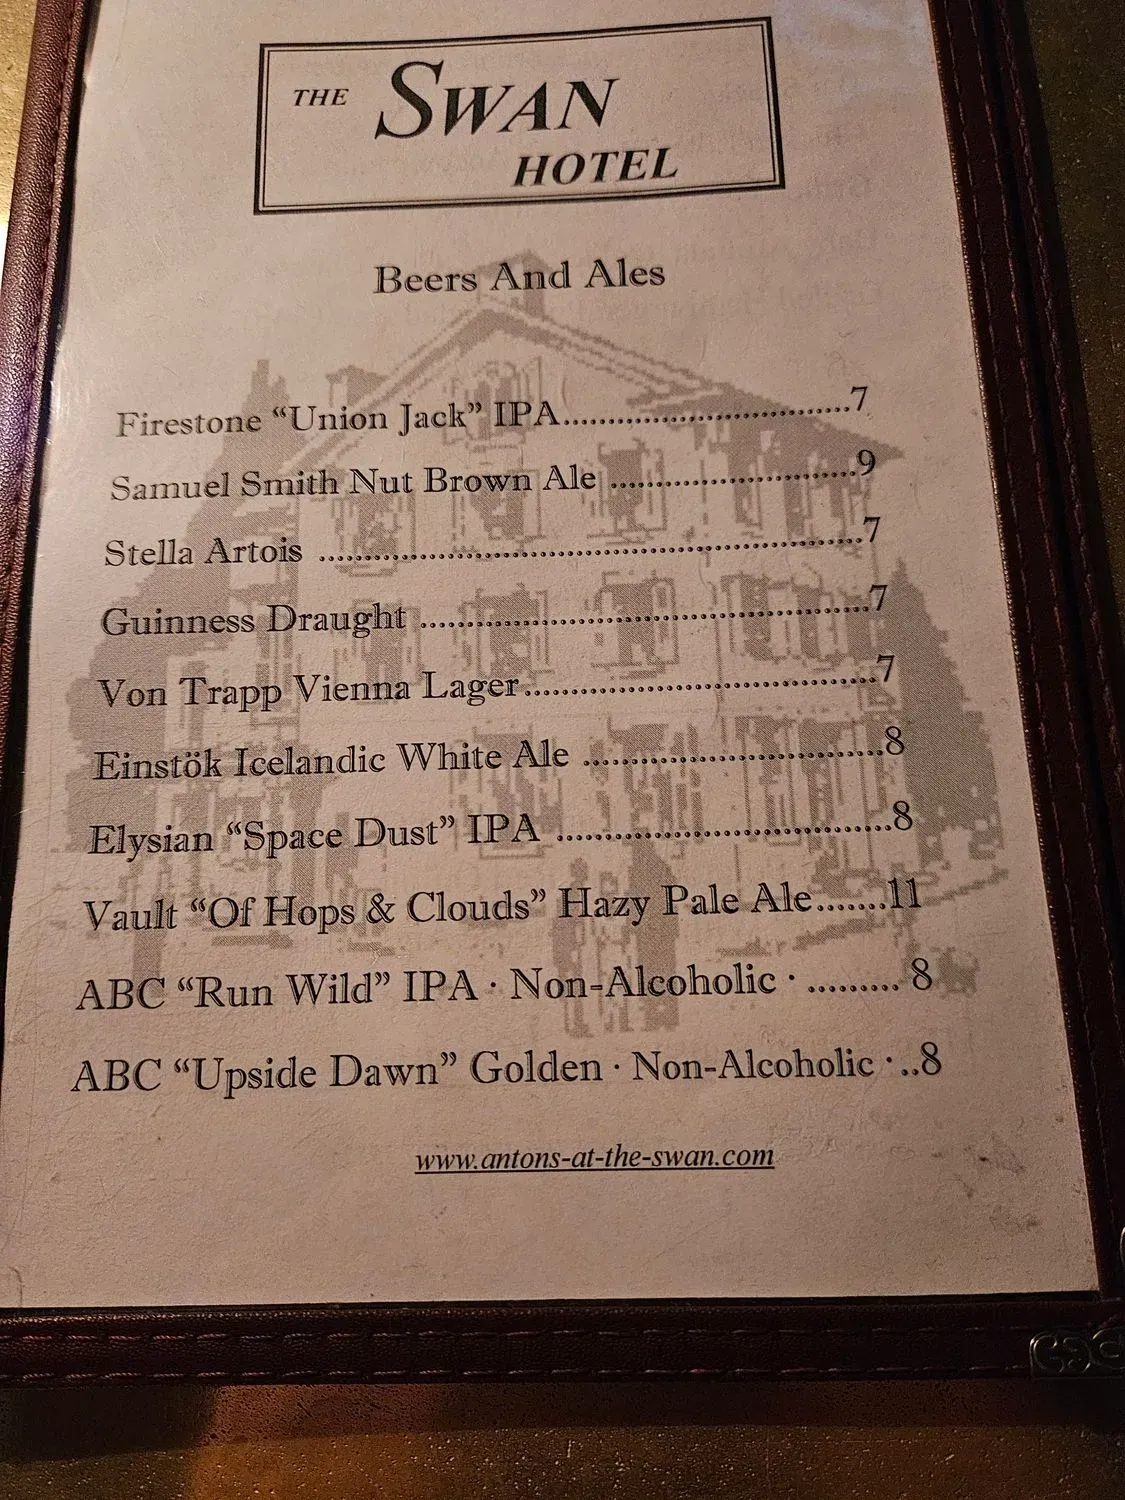 THE SWAN
HOTEL
Beers And Ales
Firestone “Union Jack” IPA..............................7
Samuel Smith Nut Brown Ale ..........................9
Stella Artois ..........................................................7
Guinness Draught ................................................7
Von Trapp Vienna Lager......................................7
Einstök Icelandic White Ale ................................8
Elysian “Space Dust” IPA ...................................8
Vault “Of Hops & Clouds” Hazy Pale Ale.......11
ABC “Run Wild” IPA · Non-Alcoholic · ......... 8
ABC “Upside Dawn” Golden · Non-Alcoholic · ..8
www.antons-at-the-swan.com